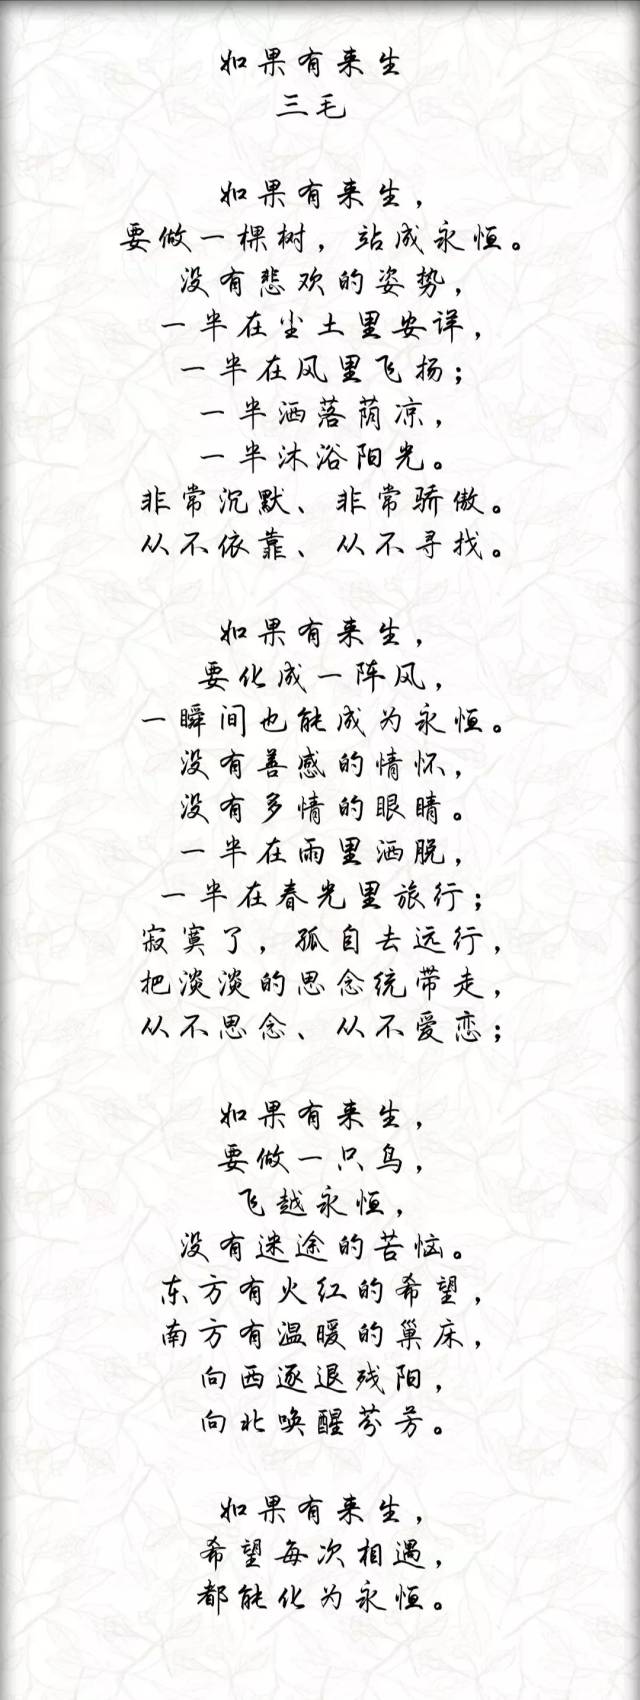 如果有来生
三毛
如果有来生，
要做一棵树，站成永恒。
没有悲欢的姿势，
一半在尘土里安详，
一半在风里飞扬；
一半洒落荫凉，
一半沐浴阳光。
非常沉默、非常骄傲。
从不依靠、从不寻找。
如果有来生，
要化成一阵风，
一瞬间也能成为永恒。
没有善感的情怀，
没有多情的眼睛。
一半在雨里洒脱，
一半在春光里旅行；
寂寞了，孤自去远行，
把淡淡的思念统带走，
从不思念、从不爱恋；
如果有来生，
要做一只鸟，
飞越永恒，
没有迷途的苦恼。
东方有火红的希望，
南方有温暖的巢床，
向西逐退残阳，
向北唤醒芬芳。
如果有来生，
希望每次相遇，
都能化为永恒。